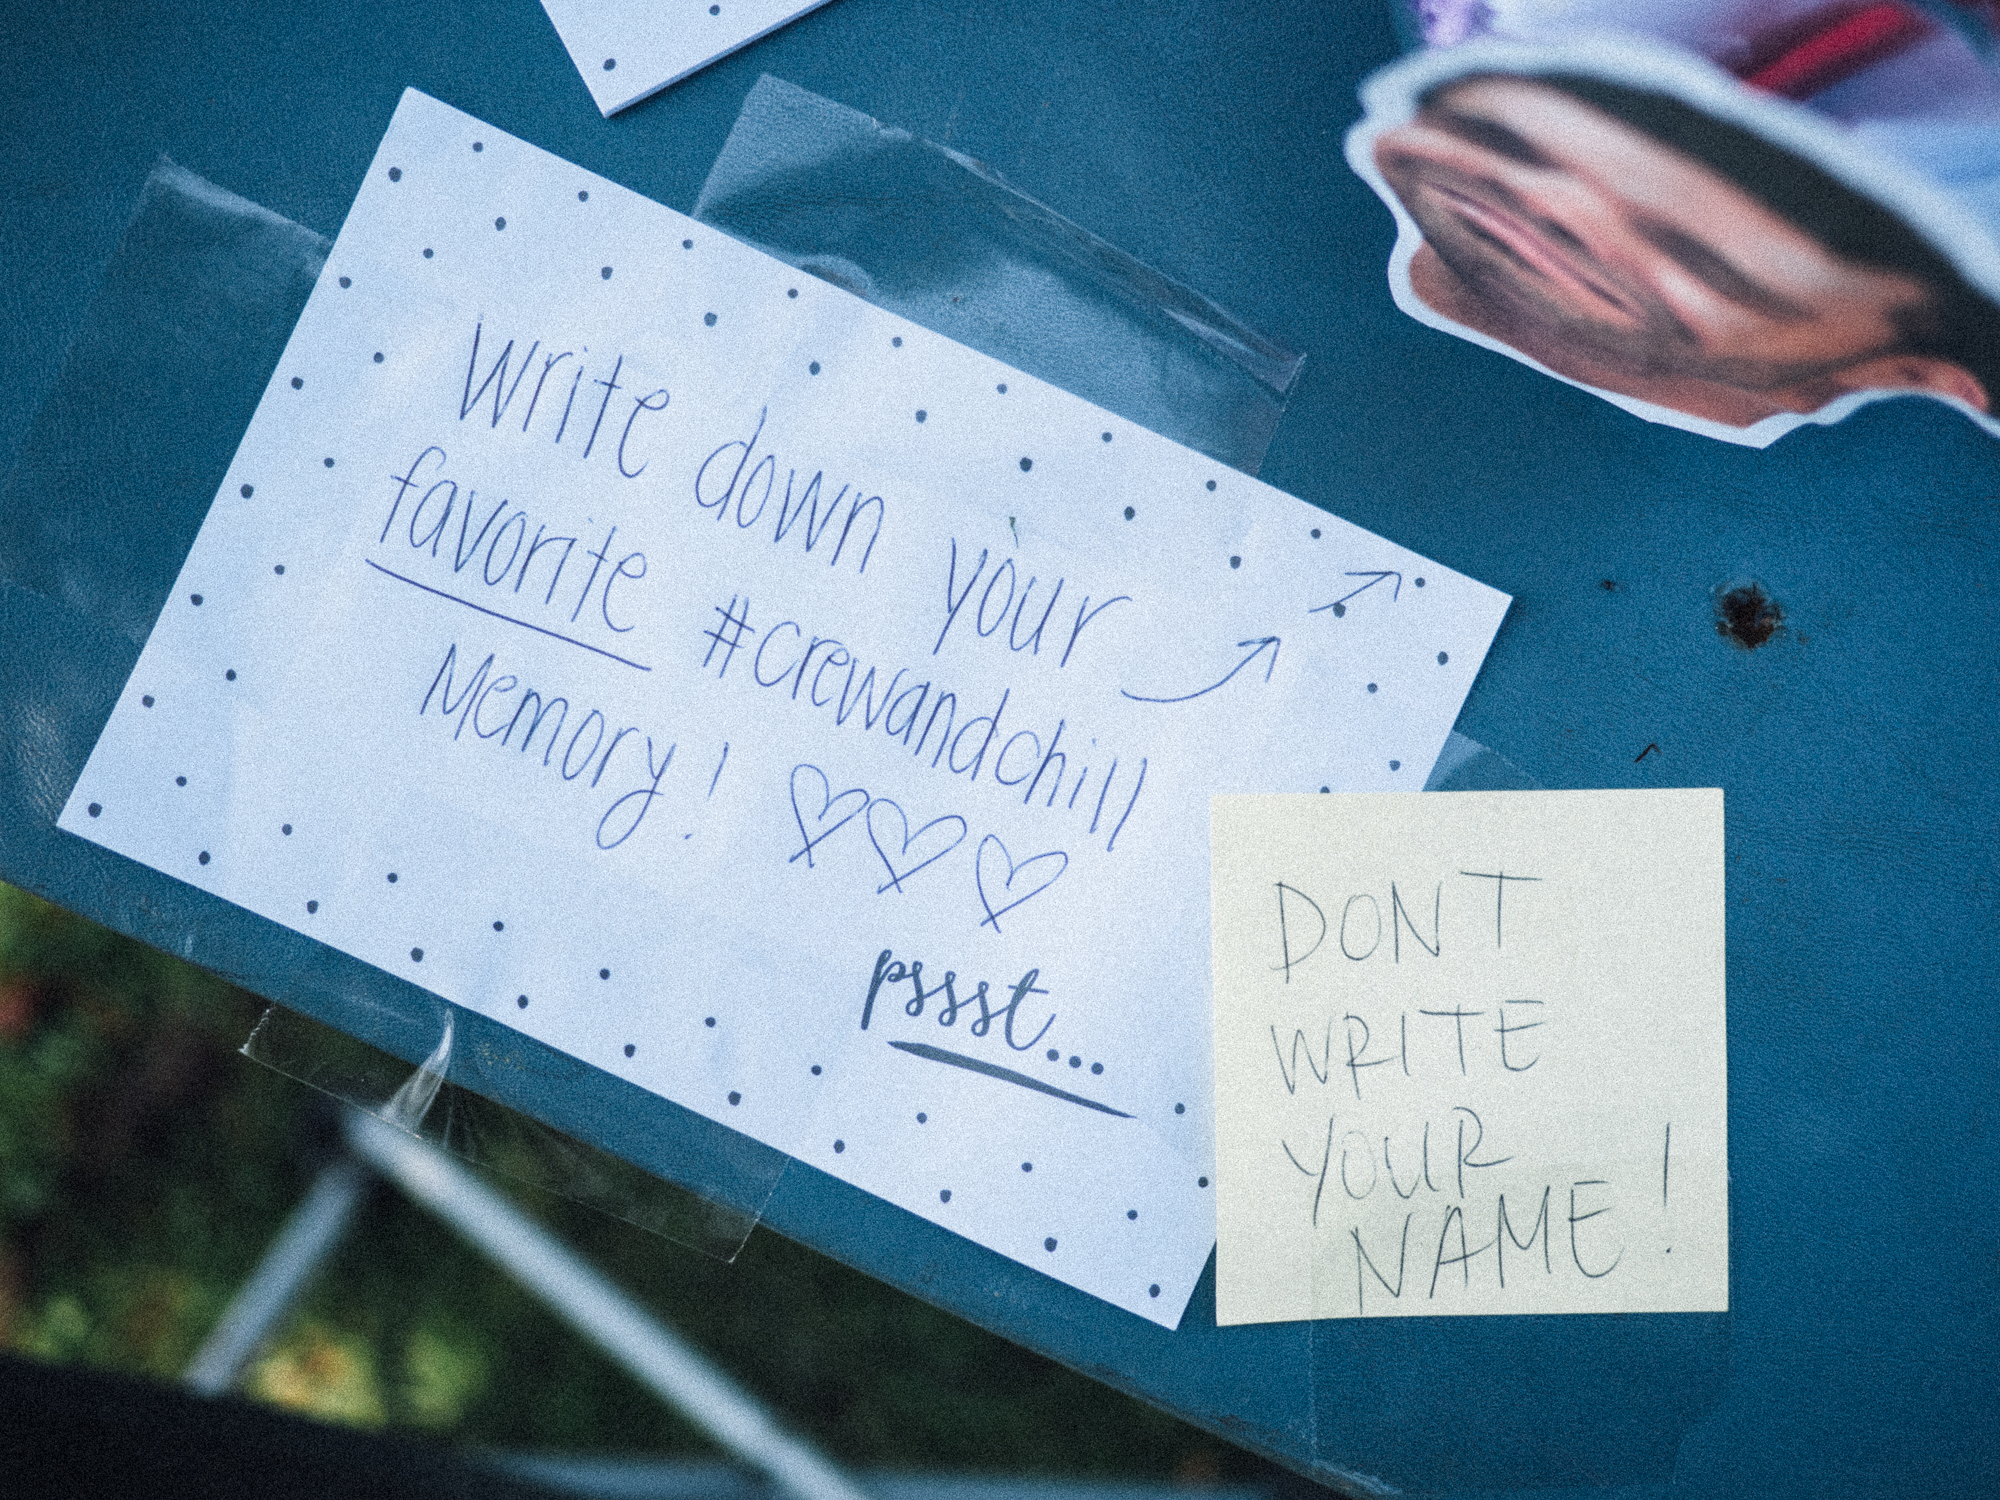 Write down your
favorite #crewandchill
Memory! ♡♡♡
pssst...
DONT
WRITE
YOUR
NAME!